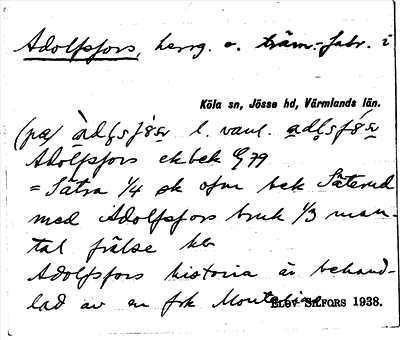 Adolfsfors, herrg. o. träm.-fabr. i
Köla sn, Jösse hd, Värmlands län.
(på) l. vanl.
Adolfsfors ekbek G 79
= Sätra 1/4 sk ofvn bek Säterud
med Adolfsfors bruk 1/3 man-
tal frälse
Adolfsfors historia är behand-
lad av en frk
ELOV SILFORS 1938.